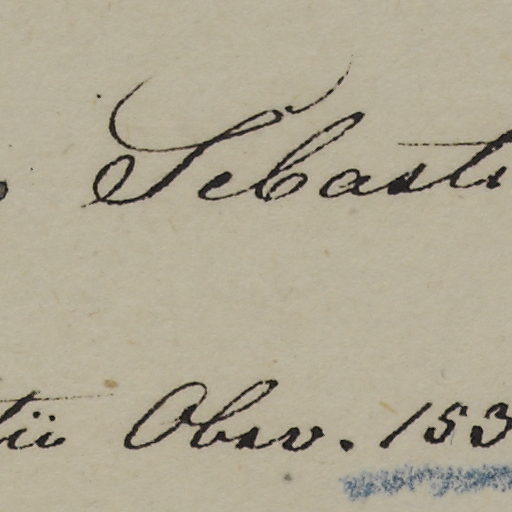 Sebasti
tii Obsv. 153